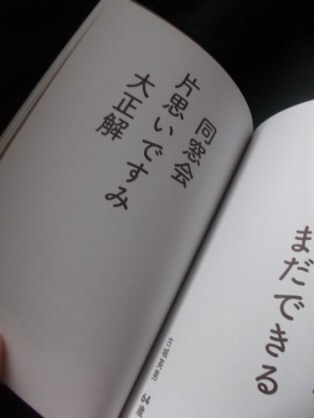 同窓会
片思いですみ
大正解
まだできる